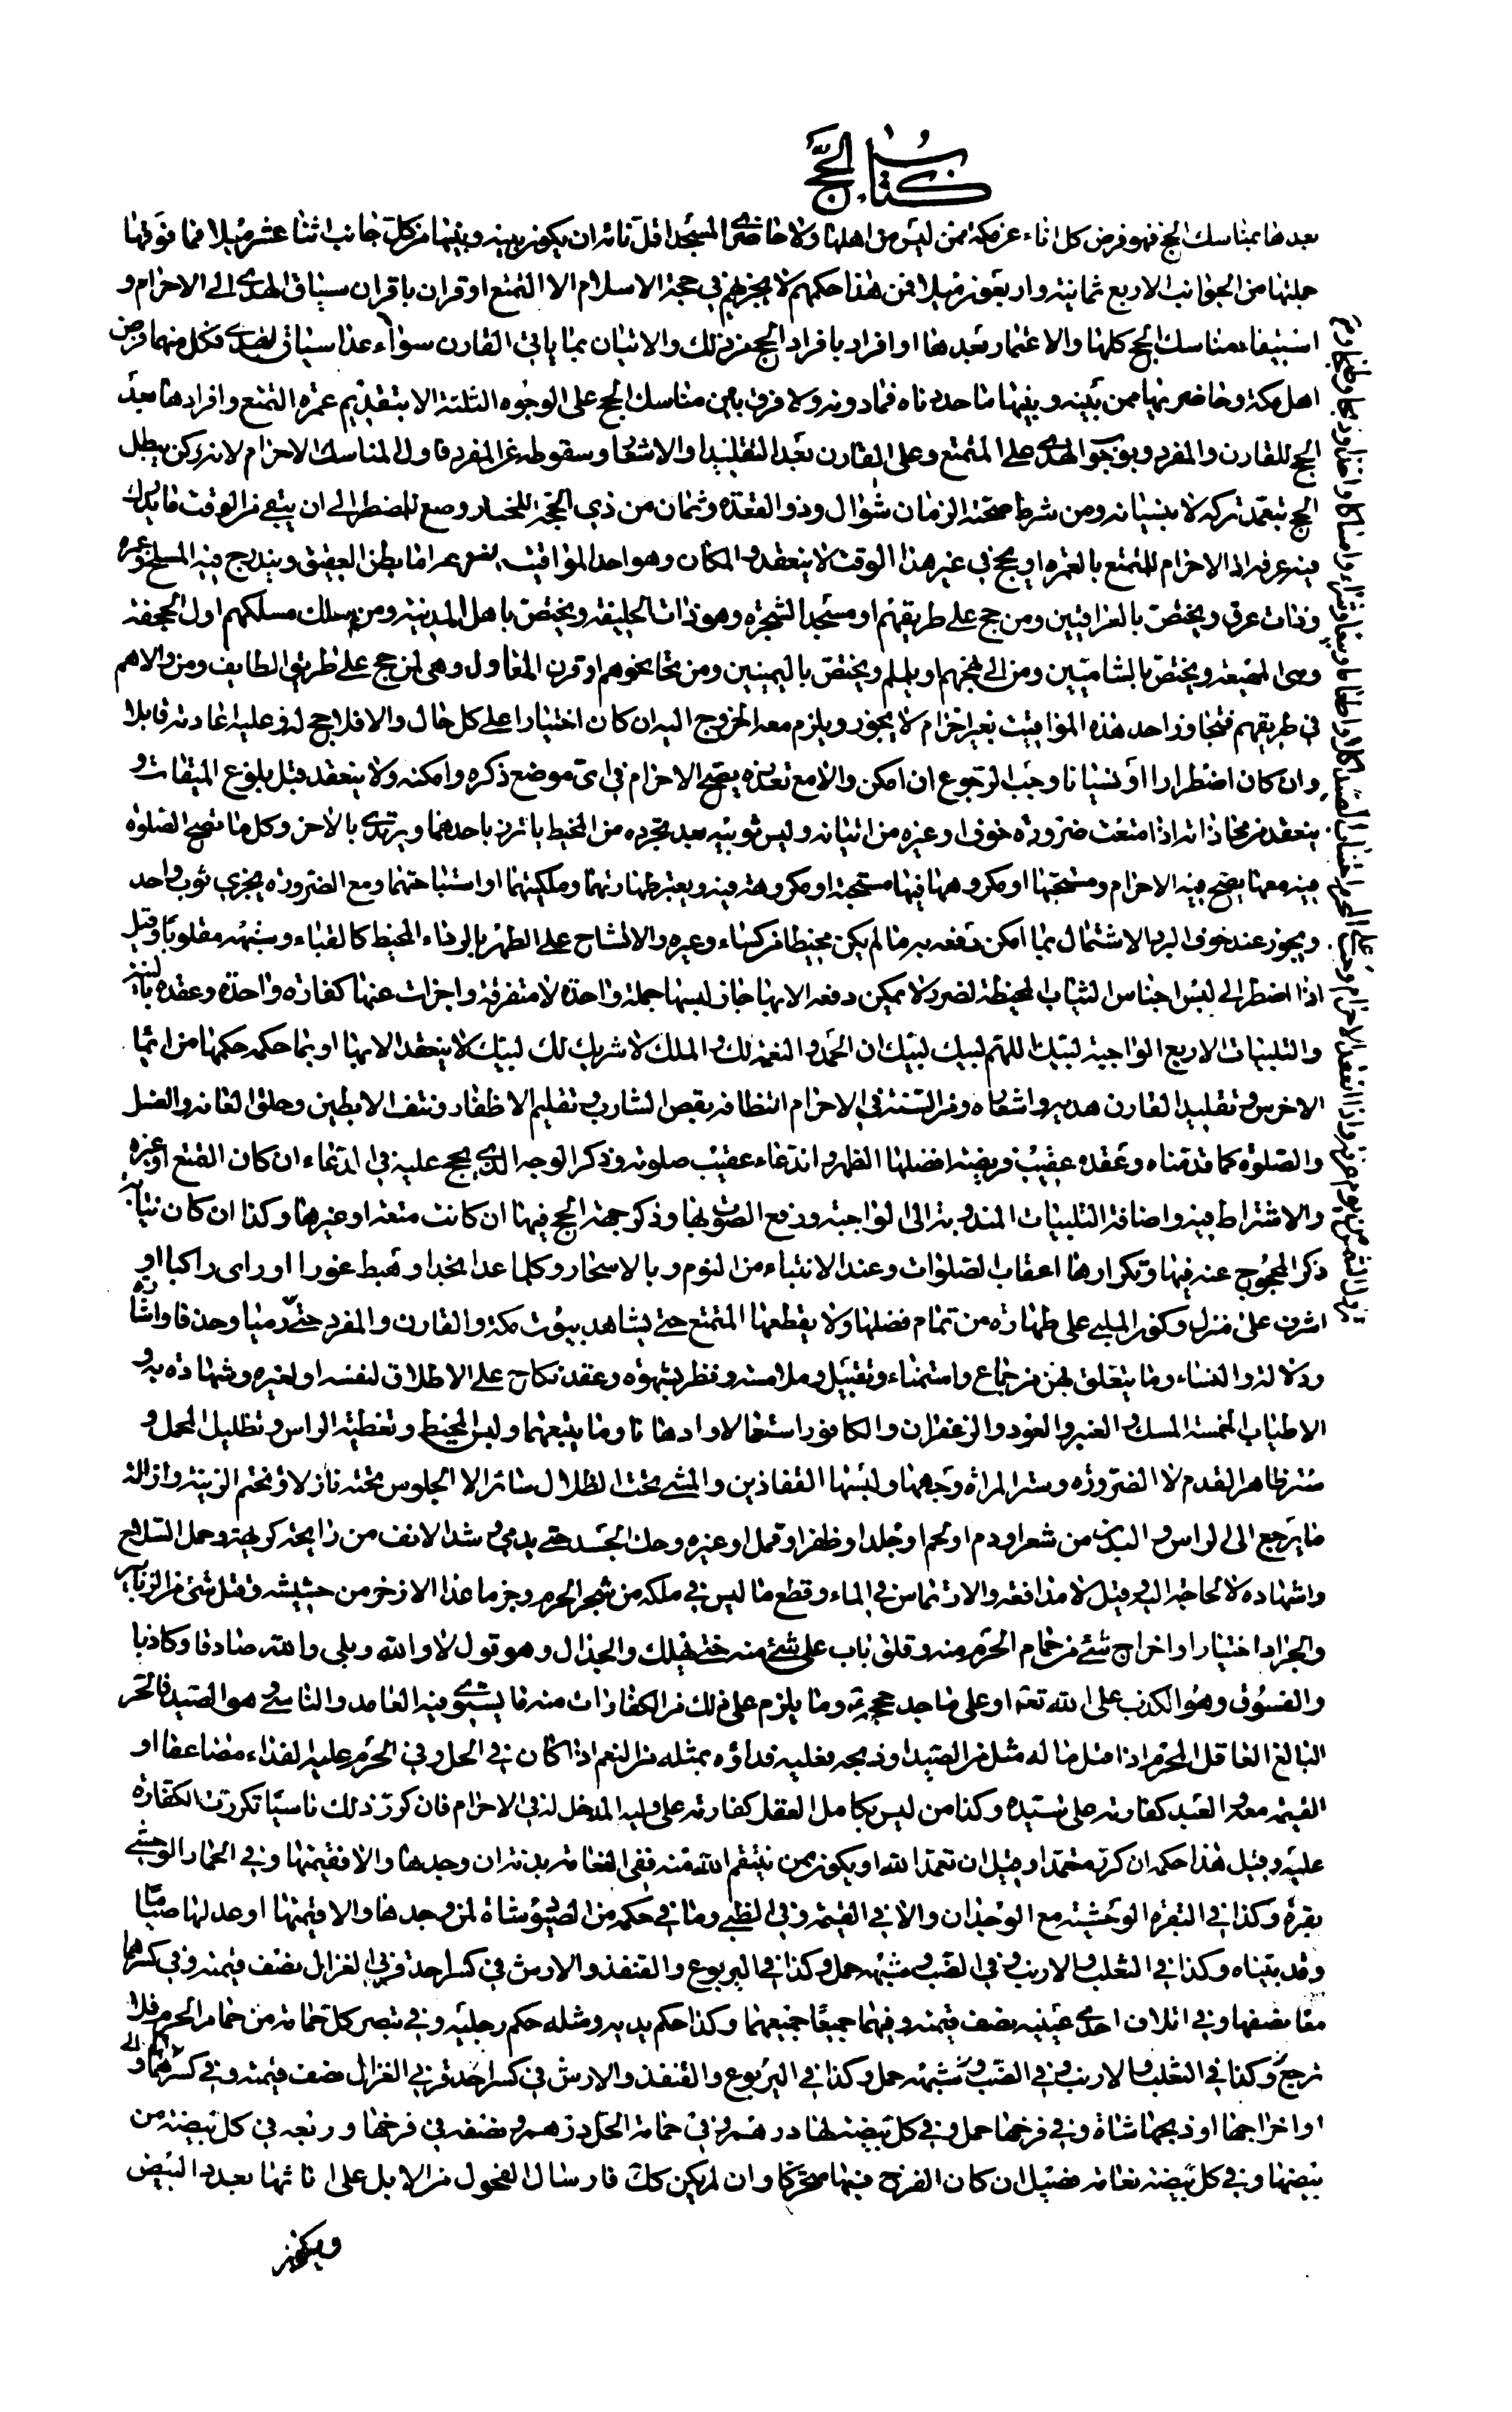 كتاب الحج
بعدها بمناسك الحج فهو فرض كل ناء عن مكة ممن ليس من اهلها ولا حاضري المسجد اقل نائه ان يكون بينه وبينها من كل جانب اثنا عشر ميلا فما فوقها
جملتها من الجوانب الاربع ثمانية واربعون ميلا فمن هذا حكمهم لا يجزيهم في حجة الاسلام الا التمتع او قران باقران سياق الهدي الى الاحرام و
استيفاء مناسك الحج كلها والاعتمار بعدها او افراد بافراد الحج من ذلك والاتيان بما ياتي القارن سواء عدا سياق الهدي فكل منهما فرض
اهل مكة وحاضريها ممن بينه وبينها ما حددناه فما دونه ولا فرق بين مناسك الحج على الوجوه الثلثة الا بتقديم عمرة التمتع وافرادها بعد
الحج للقارن والمفرد وبوجوب الهدي على المتمتع وعلى القارن بعد التقليد او الاشعار وسقوطه عن المفرد فاول المناسك الاحرام لانه ركن يبطل
الحج بتعمد تركه لا بنسيانه ومن شرط صحته الزمان شوال وذو القعدة وثمان من ذي الحجة للمختار وتسع للمضطر الى ان يبقى من الوقت ما يدرك
فيه عرفة اذ الاحرام للتمتع بالعمرة او بحج في غير هذا الوقت لا ينعقد والمكان وهو احد المواقيت اما بطن العقيق ويندرج فيه المسلخ وغمرة
وذات عرق ويختص بالعراقيين ومن حج على طريقهم او مسجد الشجرة وهو ذات الحليفة ويختص باهل المدينة ومن سلك مسلكهم او الجحفة
وهى المهيعة ويختص بالشاميين ومن الى نهجهم او يلملم ويختص باليمنيين ومن نحا نحوهم او قرن المنازل وهى لمن حج على طريق الطايف ومن والاهم
في طريقهم فتجاوز احد هذه المواقيت بغير احرام لا يجوز ويلزم معه الخروج اليه ان كان اختيارا على كل حال والا فلا حج له وعليه اعادته قابلا
وان كان اضطرارا او نسيانا وجب الرجوع ان امكن والا مع تعذره يصح الاحرام في اى موضع ذكره وامكنه ولا ينعقد قبل بلوغ الميقات و
ينعقد من محاذاته اذا منعت ضرورة خوف او غيره من اتيانه ولبس ثوبيه بعد تجرده من المخيط ياتزر باحدهما ويرتدي بالاخر وكل ما تصح الصلوة
فيه معها يصح فيه الاحرام ومستحبها او مكروهها فيها مستحبة او مكروهة فيه ويعتبر طهارتهما وملكيتهما او استباحتهما ومع الضرورة يجزي ثوب واحد
ويجوز عند خوف البرد الاشتمال بما امكن دفعه به ما لم يكن مخيطا من كساء وغيره والاتشاح على الظهر بالرداء المخيط كالقباء وشبهه مقلوبا وقيل
اذا اضطر الى لبس اجناس الثياب المخيطة لضرر لا يمكن دفعه الا بها جاز لبسها جملة واحدة لا متفرقة واجزات عنها كفارة واحدة وعقده بالنية
والتلبيات الاربع الواجبة لبيك اللهم لبيك لبيك ان الحمد والنعمة لك والملك لا شريك لك لبيك لا ينعقد الا بها او بما حكمه حكمها من ايماء
الاخرس وتقليد القارن هديه واشعاره ومن السنة في الاحرام النظافة بقص الشارب وتقليم الاظفار ونتف الابطين وحلق العانة والغسل
والصلوة كما قدمناه وعقده عقيب فريضة افضلها الظهر والدعاء عقيب صلوته وذكر الوجه الذي يحج عليه في الدعاء ان كان التمتع او غيره
والاشتراط فيه واضافة التلبيات المندوبة الى الواجبة ورفع الصوت بها وذكر جهة الحج فيها ان كانت متعة او غيرها وكذا ان كان نيابة
ذكر المحجوج عنه فيها وتكرارها اعقاب الصلوات وعند الانتباه من النوم وبالاسحار وكلما علا نجدا وهبط غورا او راى راكبا او
اشرف على منزل وكون الملبي على طهارة من تمام فضلها ولا يقطعها المتمتع حتى يشاهد بيوت مكة والقارن والمفرد حتى
ودلالة والنساء وما يتعلق بهن من جماع واستمناء وتقبيل وملامسة ونظر بشهوة وعقد نكاح على الاطلاق لنفسه او لغيره وشهادة به و
الاطياب الخمسة المسك والعنبر والعود والزعفران والكافور استعمالا وادهانا وما يتبعهما ولبس المخيط وتغطية الراس وتظليل المحمل و
ستر ظاهر القدم لا الضرورة وستر المراة وجهها ولبسها القفازين والمشي تحت الظلال سائرا لا الجلوس تحته نازلا وتختم الزينة وازالة
ما يرجع الى الراس والبدن من شعر او دم او لحم او جلد او ظفر او قمل او غيره وحك الجسد حتى يدمي وشد الانف من رايحة كريهة وحمل السلاح
واشهاره لا لحاجة اليه وقيل لا مدافعة والارتماس في الماء وقطع ما ليس في ملكه من شجر الحرم وجز ما عدا الاذخر من حشيشه وقتل شئ من الزنابير
والجراد اختيارا واخراج شئ من حمام الحرم منه وغلق باب على شئ منه حتى يهلك والجدال وهو قول لا والله وبلى والله صادقا وكاذبا
والفسوق وهو الكذب على الله تعه او على احد حججه وما يلزم على ذلك من الكفارات منه ما يستوي فيه العامد والناسي وهو الصيد فالحر
البالغ العاقل المحرم اذا قتل ما له مثل من الصيد او ذبحه فعليه فداؤه بمثله من النعم اذا كان في الحل وفي الحرم عليه الفداء مضاعفا او
القيمة معه والعبد كفارته على سيده وكذا من ليس بكامل العقل كفارته على وليه المدخل له في الاحرام فان كرر ذلك ناسيا تكررت الكفارة
عليه وقيل هذا حكمه ان كرره متعمدا وقيل ان تعمد الله او يكون ممن ينتقم الله منه ففي النعامة بدنة ان وجدها والا فقيمتها وفي الحمار الوحشي
بقرة وكذا في البقرة الوحشية مع الوجدان والا في القيمة وفي الظبي وما في حكمه من الصيود شاة لمن وجدها والا قيمتها او عدلها صياما
وقد بيناه وكذا في الثعلب والارنب وفي الضب وشبهه حمل وكذا في اليربوع والقنفذ والارش في كسر احد قرني الغزال نصف قيمته وفي كسرهما
معا نصفها وفي اتلاف احدى عينيه نصف قيمته وفيهما جميعا جميعهما وكذا حكم يديه ومثله حكم رجليه وفي تنفير كل حمامة من حمام الحرم فلا
ترجع وكذا في الثعلب والارنب وفي الضب وشبهه حمل وكذا في اليربوع والقنفذ والارش في كسر احد قرني الغزال نصف قيمته وفي كسرهما و
او اخراجها او ذبحها شاة وفي فرخها حمل وفي كل بيضة لها درهم وفي حمامة الحل درهم ونصفه في فرخها وربعه في كل بيضة من
بيضها وفي كل بيضة نعامة فصيل ان كان الفرخ فيها متحركا وان لم يكن كك فارسال الفحول من الابل على اناثها بعدد البيض